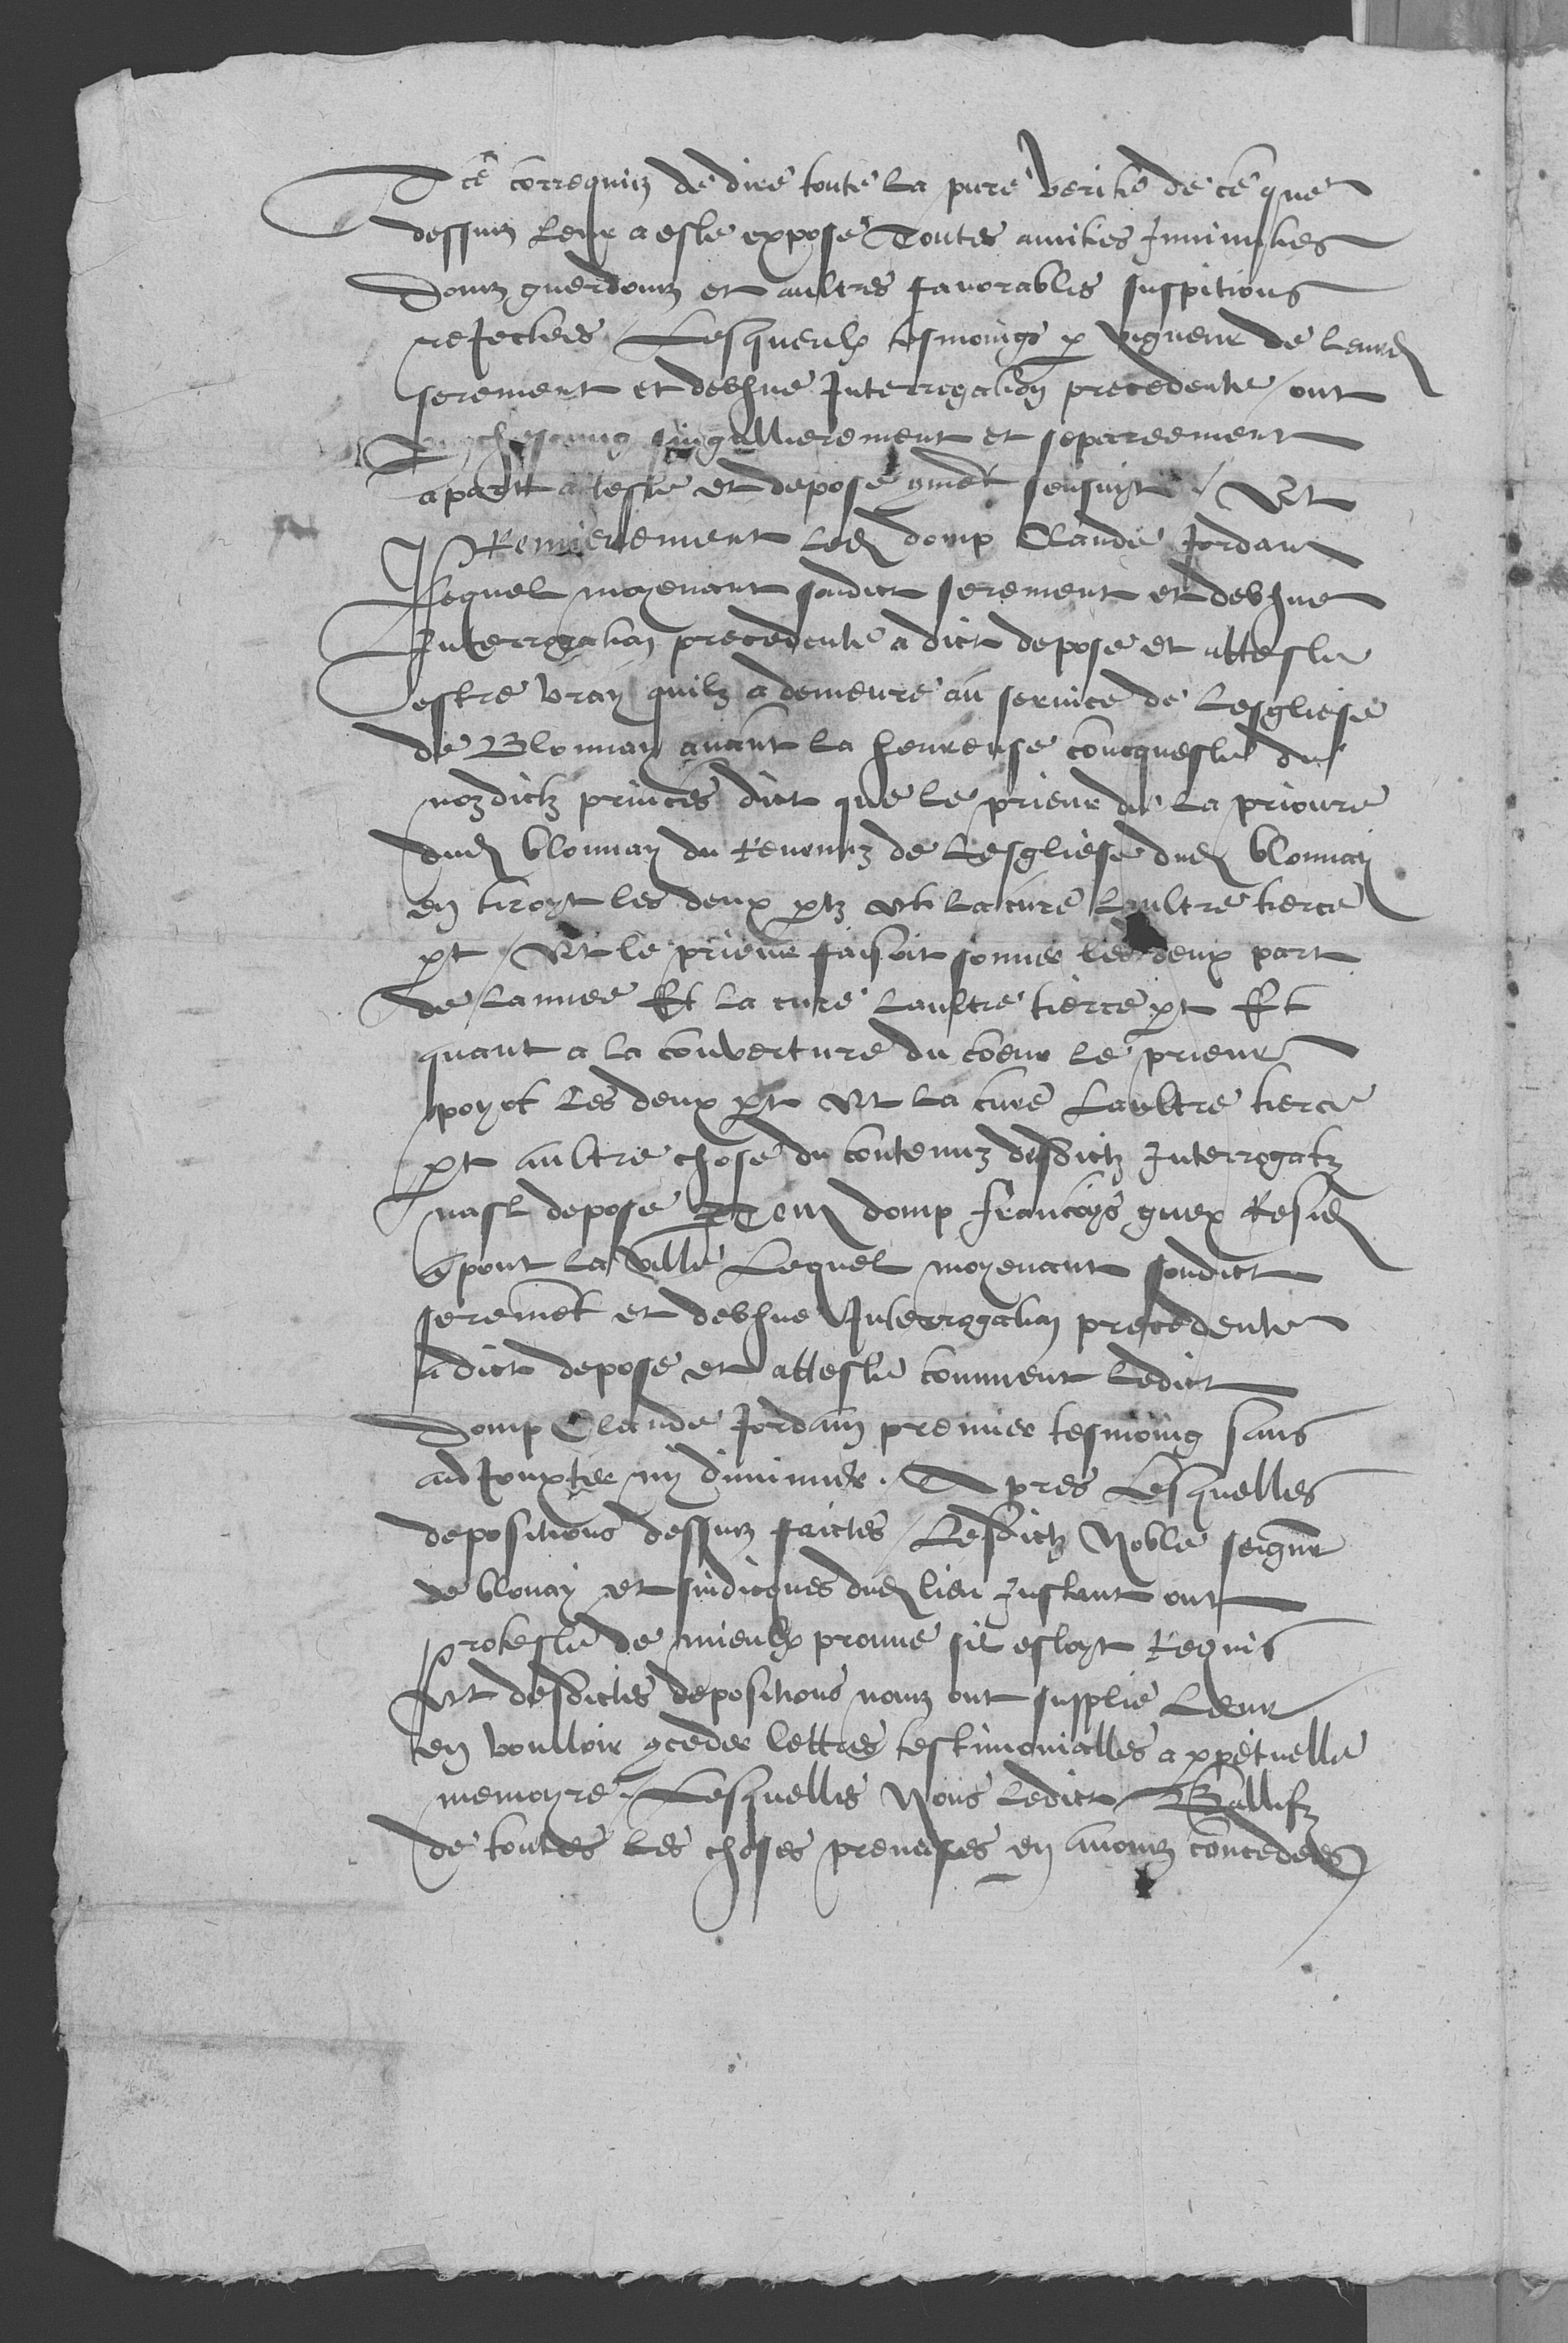 Et ce correquiz de dire toute la pure verite de ce que
dessuz leur a este expose Toutes amities Innimities
domz guerdomz et aultres favorables suspitions
reJectees / Lesqueulx tesmoings p vigueur de leurd
serement et debhue Interrogation precedente / ont
ung chescung singullierement et separeement
a partt atteste et depose gmet sensuyt / Et
PRemierement led domp Claude Jordan
Lequel moyenant sondict serement et debhue
Interrogation precedente a dict depose et atteste
estre vray quilz a demeure au service de Lesgliese
de Blonnay avant la heureuse concqueste de
nozdictz princes dict que le prieur de la prioure
dud blonnay du Revenuz de Lesgliese dud blonnay
en tiroyt les deux ptz Et la cure Laultre tierce
pt / Et le prieur faisoit sonner les deux part
de lannee Et la cure laultre tierce pt Et
quant a la couverture du coeur le prieur
poyot les deux pt Et la cure Laultre tierce
pt aultre chose du contenuz desdictz Interrogatz
nast depose ITem domp francoys guex Resid
a pont la ville Lequel moyenant sondict
seremet et debhue Interrogation precedente
a dict depose et atteste comment ledict
Domp Claude Jordan premier tesmoing sans
adJouxter ny diminuer . Apres Lesquelles
depositions dessuz faictes / Lesdictz Noble seignr
de blonay et sindicques dud lieu Instant ont
proteste de mieulx prouve sil estoyt Requis
Et desdictes depositions nouz ont supplie Leur
en voulloir gceder lettres testimonialles a ppetuelle
memoyre / Lesquelles Nous ledict Ballifz
de toutes les choses premises en avonz concedees